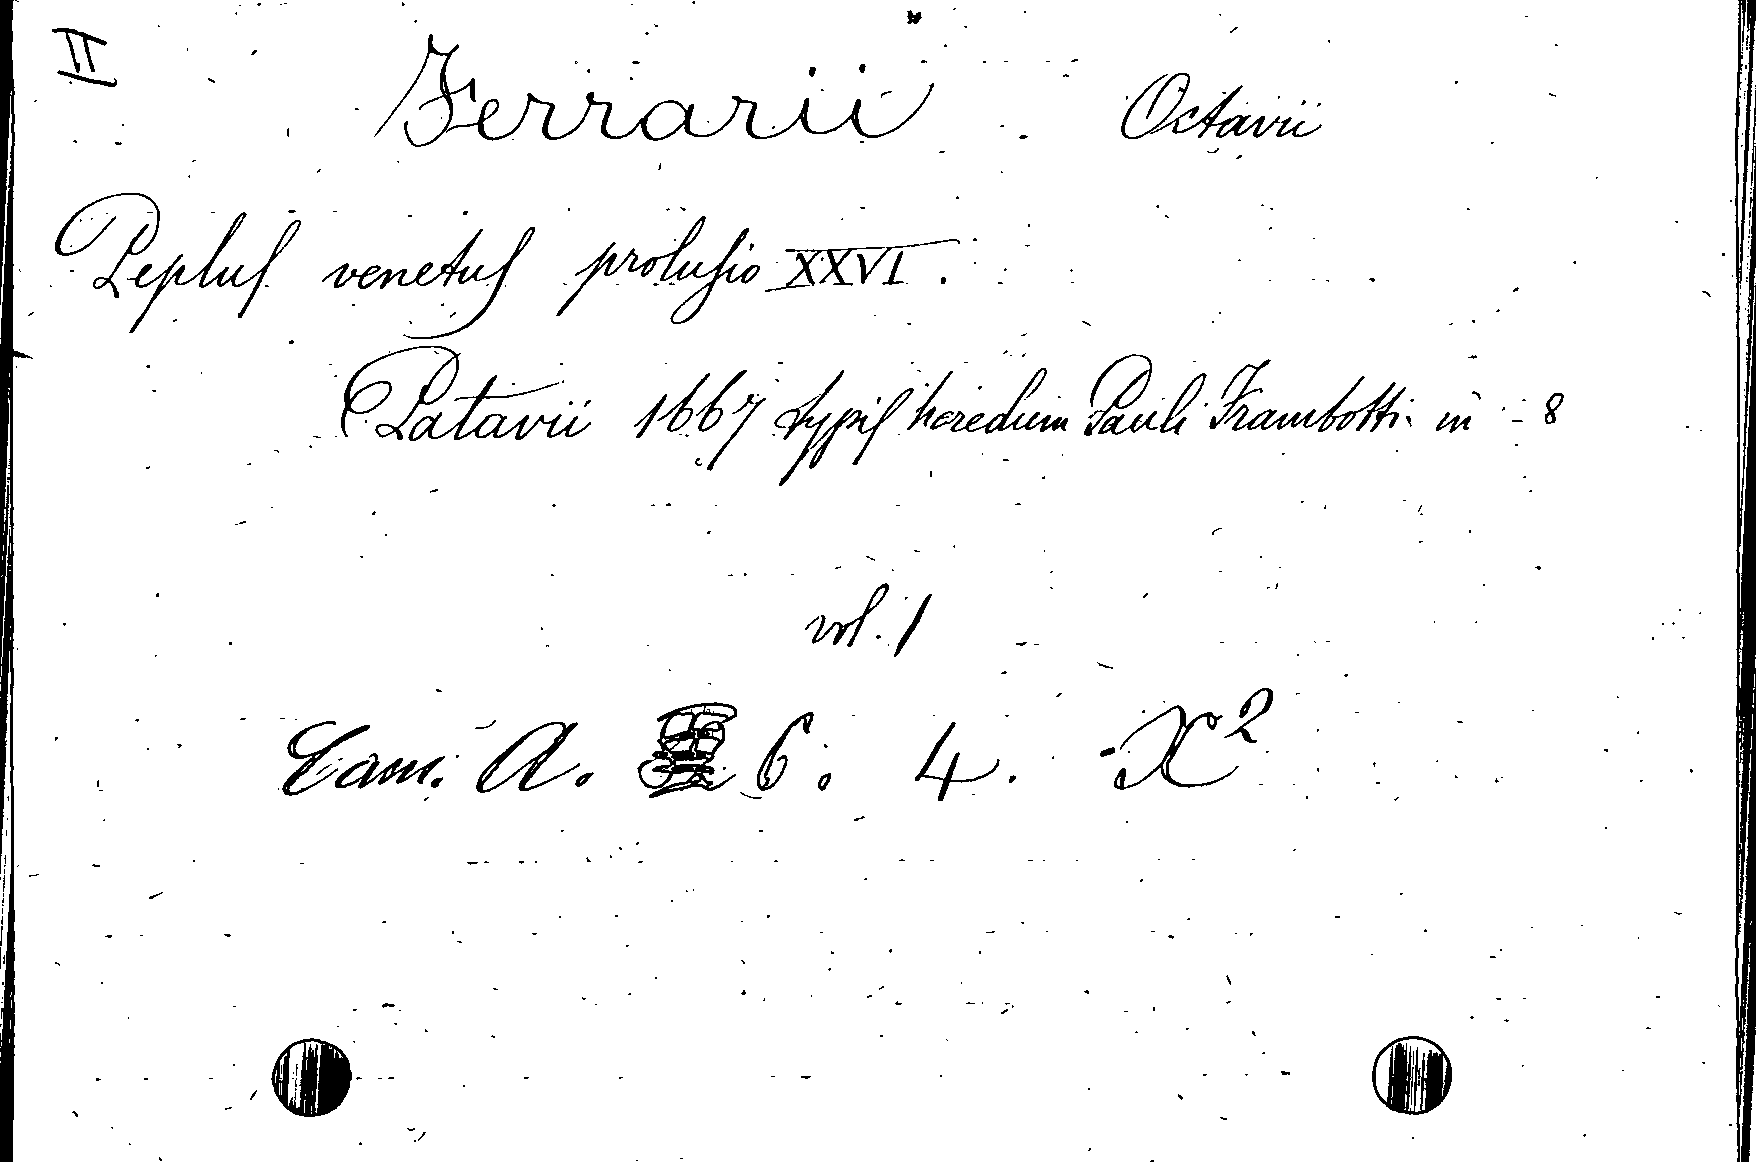 II
Ferrarii Octavii
Peplus venetus prolusio XXVI.
Patavii 1667 typis heredum Pauli Frambotti in - 8
vol. 1
Cam. A. 6. 4. X²